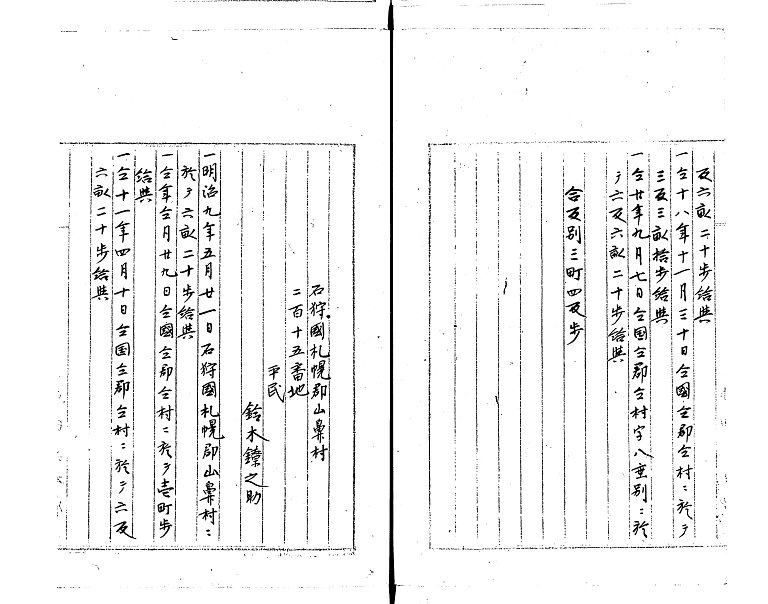 反六畝二十歩給與
一仝十八年十一月三十日仝國仝郡仝村ニ於テ
三反三畝拾歩給與
一仝廿年九月七日仝国仝郡仝村字八垂別ニ於
テ六反六畝二十歩給與
合反別三町四反歩
石狩國札幌郡山鼻村
二百十五番地
平民
鈴木鐐之助
一明治九年五月廿一日石狩國札幌郡山鼻村ニ
於テ六畝二十歩給與
一仝年仝月廿九日仝國仝郡仝村ニ於テ壱町歩
給與
一仝十一年四月十日仝国仝郡仝村ニ於テ六反
六畝二十歩給與